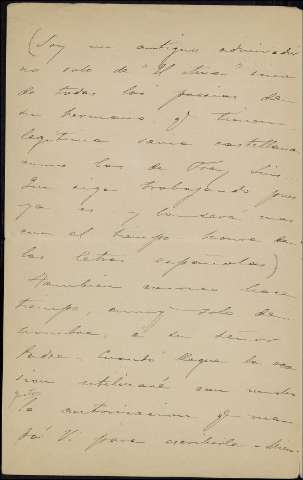 (Soy un antiguo admirador
no solo de "El           " sino
de todas las poesias de
su hermano, q tienen
legitima savia castellana
como las de Fray Luis.
Que siga trabajando pues
ya es y             mas
con el tiempo honra de
las letras españolas)
Tambien conozco hace
tiempo, aunq solo de
nombre, a su señor
Padre. Cuando llegue la oca
sion utilizaré con mucho
gusto la autorizacion q me
dá V. para escribirle.